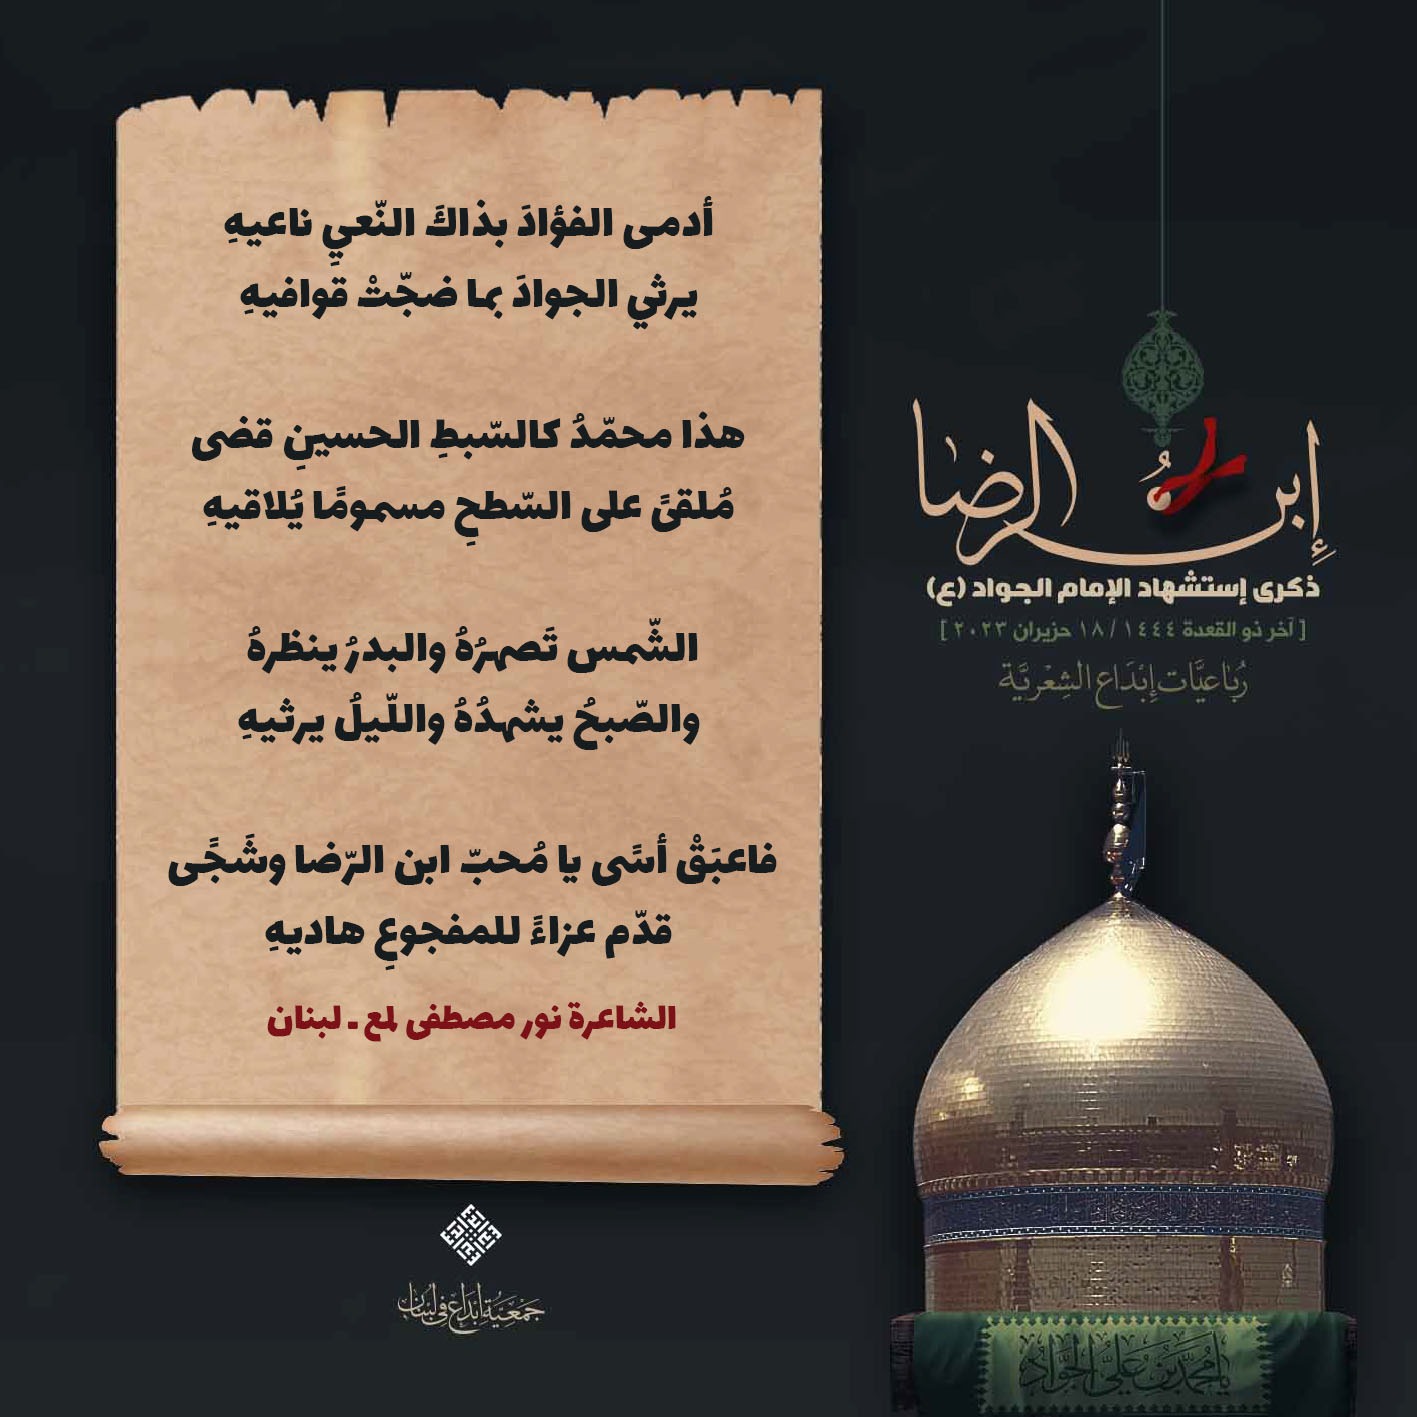 أدمى الفؤادَ بذاكَ النّعيِ ناعيهِ
يرثي الجوادَ بما ضجّتْ قوافيهِ
هذا محمّدُ كالسّبطِ الحسينِ قضى
مُلقىً على السّطحِ مسمومًا يُلاقيهِ
الشّمس تَصهرُهُ والبدرُ ينظرهُ
والصّبحُ يشهدُهُ واللّيلُ يرثيهِ
فاعبَقْ أسًى يا مُحبّ ابن الرّضا وشَجًى
قدّم عزاءً للمفجوعِ هاديهِ
الشاعرة نور مصطفى لمع ـ لبنان
إبن الرضا
ذكرى إستشهاد الإمام الجواد (ع)
[ آخر ذو القعدة ١٤٤٤ / ١٨ حزيران ٢٠٢٣ ]
رُبَاعيَّات إبْدَاع الشِعْريَّة
جَمْعِيَّة إبْدَاع في لبنان
يا محمد بن علي الجواد